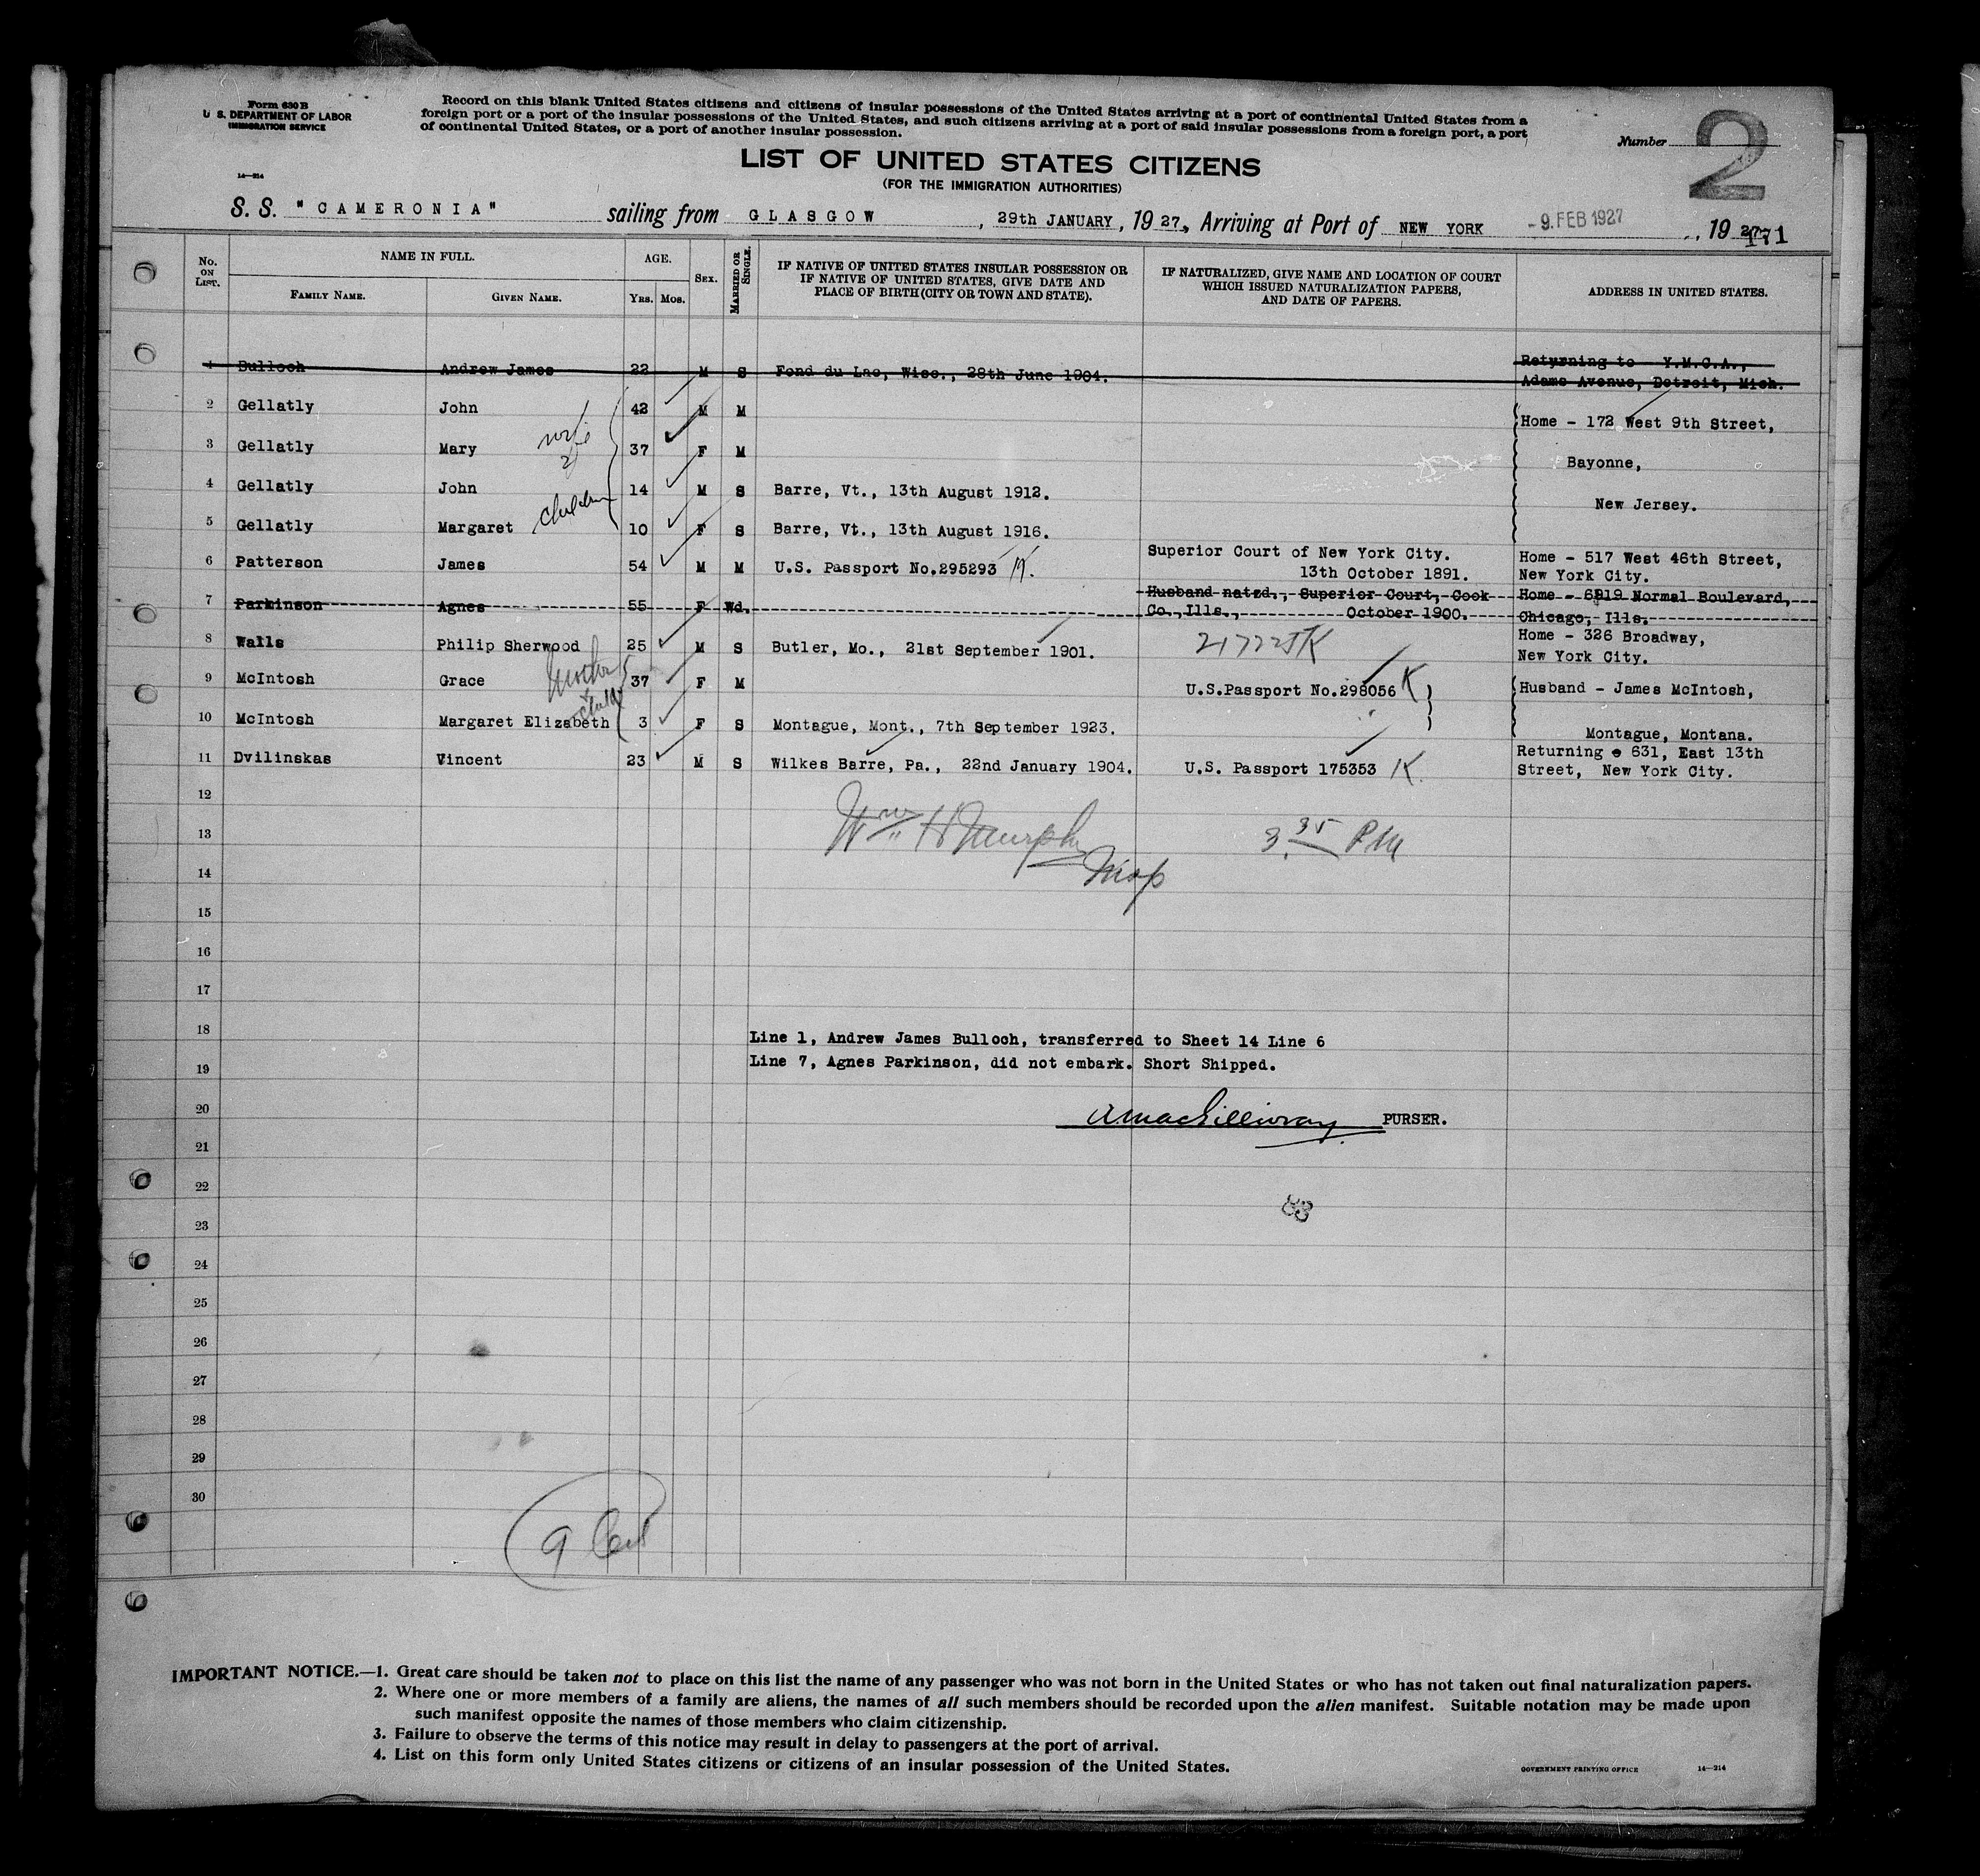 Form 630 B
U. S. DEPARTMENT OF LABOR
IMMIGRATION SERVICE
14—214
Record on this blank United States citizens and citizens of insular possessions of the United States arriving at a port of continental United States from a
foreign port or a port of the insular possessions of the United States, and such citizens arriving at a port of said insular possessions from a foreign port, a port
of continental United States, or a port of another insular possession.
Number 2
LIST OF UNITED STATES CITIZENS
(FOR THE IMMIGRATION AUTHORITIES)
S. S. "CAMERONIA" sailing from GLASGOW, 29th JANUARY, 1927., Arriving at Port of NEW YORK - 9. FEB 1927 , 1927.
171
No. ON LIST. NAME IN FULL. AGE. SEX. MARRIED OR SINGLE. IF NATIVE OF UNITED STATES INSULAR POSSESSION OR IF NATIVE OF UNITED STATES, GIVE DATE AND PLACE OF BIRTH (CITY OR TOWN AND STATE). IF NATURALIZED, GIVE NAME AND LOCATION OF COURT WHICH ISSUED NATURALIZATION PAPERS, AND DATE OF PAPERS. ADDRESS IN UNITED STATES.
FAMILY NAME. GIVEN NAME. YRS. MOS.
1 Bulloch Andrew James 22 M S Fond du Lac, Wisc., 28th June 1904. Returning to Y.M.C.A.,
Adams Avenue, Detroit, Mich.
2 Gellatly John 42 M M
Home - 172 West 9th Street,
3 Gellatly Mary wife 37 F M
Bayonne,
4 Gellatly John 14 M S Barre, Vt., 13th August 1912.
children
New Jersey.
5 Gellatly Margaret 10 F S Barre, Vt., 13th August 1916.
6 Patterson James 54 M M U.S. Passport No.295293 K. Superior Court of New York City. Home - 517 West 46th Street,
13th October 1891. New York City.
7 Parkinson Agnes 55 F Wd. Husband natzd., Superior Court, Cook Home - 6819 Normal Boulevard,
Co., Ills., October 1900. Chicago, Ills.
8 Walls Philip Sherwood 25 M S Butler, Mo., 21st September 1901. 217725K Home - 326 Broadway,
New York City.
9 McIntosh Grace Mother 37 F M U.S.Passport No.298056 K Husband - James McIntosh,
+ child
10 McIntosh Margaret Elizabeth 3 F S Montague, Mont., 7th September 1923. Montague, Montana.
11 Dvilinskas Vincent 23 M S Wilkes Barre, Pa., 22nd January 1904. U.S. Passport 175353 K. Returning 631, East 13th
Street, New York City.
12
13 Wm H Murphy 3.35 PM
14
15
16
17
18 Line 1, Andrew James Bulloch, transferred to Sheet 14 Line 6
19 Line 7, Agnes Parkinson, did not embark. Short Shipped.
20 A MacGillivray PURSER.
21
22
23
24
25
26
27
28
29
30
9
IMPORTANT NOTICE.—1. Great care should be taken not to place on this list the name of any passenger who was not born in the United States or who has not taken out final naturalization papers.
2. Where one or more members of a family are aliens, the names of all such members should be recorded upon the alien manifest. Suitable notation may be made upon
such manifest opposite the names of those members who claim citizenship.
3. Failure to observe the terms of this notice may result in delay to passengers at the port of arrival.
4. List on this form only United States citizens or citizens of an insular possession of the United States.
GOVERNMENT PRINTING OFFICE 14—214